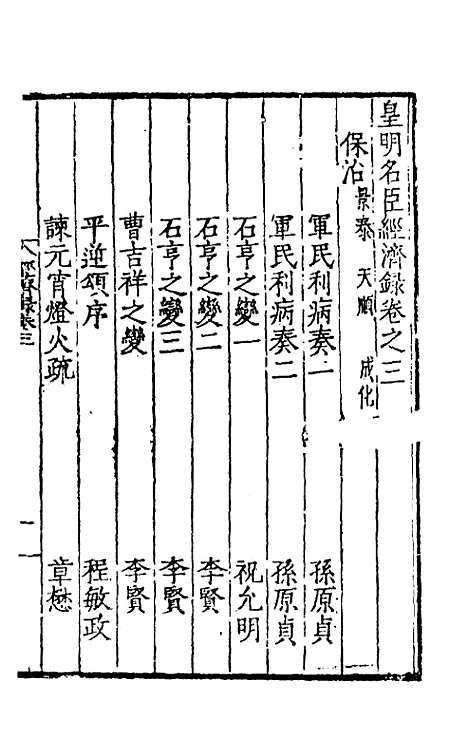 皇明名臣經濟錄卷之三
保治 景泰 天順 成化
軍民利病奏一 孫原貞
軍民利病奏二 孫原貞
石亨之變一 祝允明
石亨之變二 李賢
石亨之變三 李賢
曹吉祥之變 李賢
平逆頌序 程敏政
諫元宵燈火疏 章懋
經濟錄卷三 一